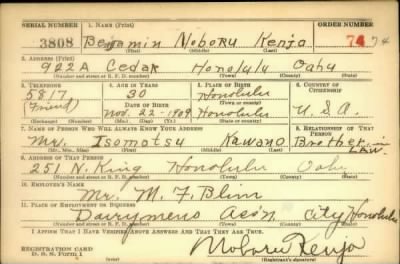 SERIAL NUMBER 1. NAME (Print) ORDER NUMBER
3808 Benjamin Noboru Kenjo 74 74
2. ADDRESS (Print)
922A Cedar Honolulu Oahu
(Number and street or R. F. D. number) (Town) (County) (State)
3. TELEPHONE 4. AGE IN YEARS 5. PLACE OF BIRTH 6. COUNTRY OF CITIZENSHIP
5817 30 Honolulu
(Friend) DATE OF BIRTH (Town or county)
Nov. 22-1909 Honolulu U.S.A.
(Exchange) (Number) (Mo.) (Day) (Yr.) (State or country)
7. NAME OF PERSON WHO WILL ALWAYS KNOW YOUR ADDRESS 8. RELATIONSHIP OF THAT PERSON
Mr. Isomatsu Kawano Brother in Law
(Mr., Mrs., Miss) (First) (Middle) (Last)
9. ADDRESS OF THAT PERSON
251 N. King Honolulu Oahu
(Number and street or R. F. D. number) (Town) (County) (State)
10. EMPLOYER'S NAME
Mr. M. F.
11. PLACE OF EMPLOYMENT OR BUSINESS
Dairymens Ass'n City Honolulu
(Number and street or R. F. D. number) (Town) (County) (State)
I AFFIRM THAT I HAVE VERIFIED ABOVE ANSWERS AND THAT THEY ARE TRUE.
REGISTRATION CARD
D. S. S. Form 1 Noboru Kenjo